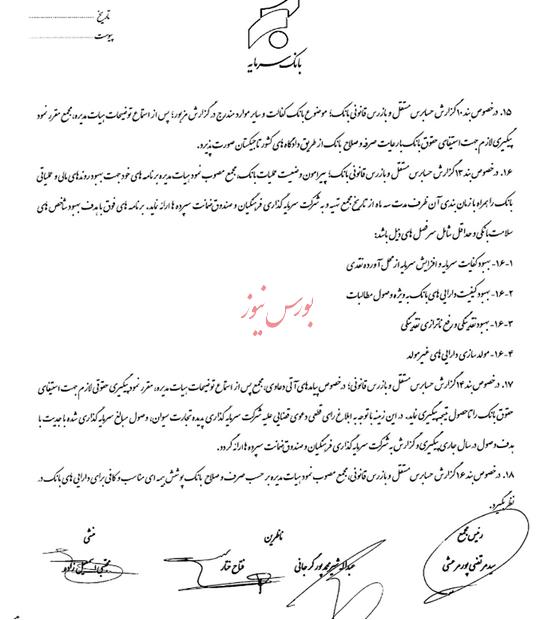 تاریخ
پیوست
بانک سرمایه
۱۵. درخصوص بند ۱۰ گزارش حسابرس مستقل و بازرس قانونی بانک؛ موضوع بانک کفالت و سایر موارد مندرج در گزارش مزبور؛ پس از استماع توضیحات هیات مدیره، مجمع مقرر نمود
پیگیری لازم جهت استیفای حقوق بانک با رعایت صرفه و صلاح بانک از طریق دادگاه های کشور تاجیکستان صورت پذیرد.
۱۶. درخصوص بند ۱۳ گزارش حسابرس مستقل و بازرس قانونی بانک؛ پیرامون وضعیت عملیات بانک، مجمع مصوب نمود هیات مدیره برنامه های خود جهت بهبود روندهای مالی و عملیاتی
بانک را همراه با زمان بندی آن ظرف مدت سه ماه از تاریخ مجمع تهیه و به شرکت سرمایه گذاری فرهنگیان و صندوق ضمانت سپرده ها ارائه نماید. برنامه های فوق با هدف بهبود شاخص های
سلامت بانکی و حداقل شامل سرفصل های ذیل باشد:
۱۶-۱- بهبود کفایت سرمایه و افزایش سرمایه از محل آورده نقدی
۱۶-۲- بهبود کیفیت دارایی های بانک به ویژه وصول مطالبات
۱۶-۳- بهبود نقدینگی و رفع ناترازی نقدینگی
۱۶-۴- مولدسازی دارایی های غیرمولد
بورس نیوز
۱۷. درخصوص بند ۱۴ گزارش حسابرس مستقل و بازرس قانونی؛ درخصوص پیامدهای آتی دعاوی، مجمع پس از استماع توضیحات هیات مدیره، مقرر نمود پیگیری حقوقی لازم جهت استیفای
حقوق بانک را تا حصول نتیجه پیگیری نماید. در این زمینه با توجه به ابلاغ رای قطعی دعوی قضایی علیه شرکت سرمایه گذاری پدیده تجارت سیوان، وصول مبالغ سرمایه گذاری شده با جدیت با
هدف وصول در سال جاری پیگیری و گزارش به شرکت سرمایه گذاری فرهنگیان و صندوق ضمانت سپرده ها ارائه گردد.
۱۸. درخصوص بند ۱۶ گزارش حسابرس مستقل و بازرس قانونی، مجمع مصوب نمود هیات مدیره بر حسب صرف و صلاح بانک پوشش بیمه ای مناسب و کافی برای دارایی های بانک در
نظر بگیرد.
رئیس مجمع ناظرین منشی
سید مرتضی پورمرعشی عبدالله شیرمحمدپور کرجانی فتاح ختار مجتبی اسمعیل زاده